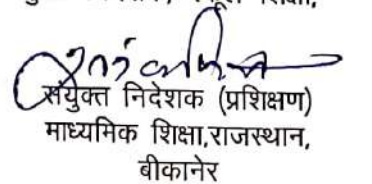 शिक्षा,
संयुक्त निदेशक (प्रशिक्षण)
माध्यमिक शिक्षा,राजस्थान,
बीकानेर